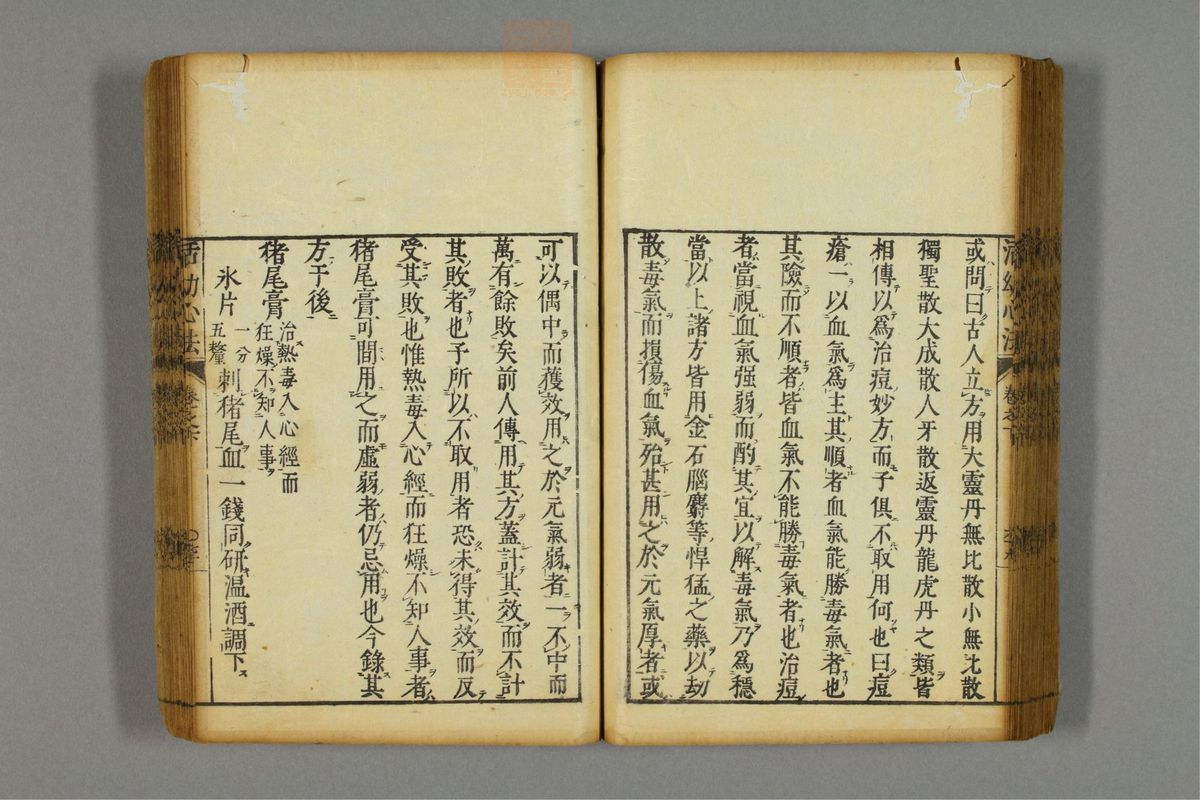 活幼心法
或問曰古人立方用大靈丹無比散小無比散
獨聖散大成散人牙散返靈丹龍虎丹之類皆
相傳以爲治痘妙方而子俱不取用何也曰痘
瘡一以血氣爲主其順者血氣能勝毒氣者也
其險而不順者皆血氣不能勝毒氣者也治痘
者當視血氣强弱而酌其宜以解毒氣乃爲穩
當以上諸方皆用金石腦麝等悍猛之藥以劫
散毒氣而損傷血氣殆甚用之於元氣厚者或
可以偶中而獲效用之於元氣弱者一不中而
萬有餘敗矣前人傳用其方蓋計其效而不計
其敗者也予所以不取用者恐未得其效而反
受其敗也惟熱毒入心經而狂燥不知人事者
猪尾膏可間用之而虛弱者仍忌用也今錄其
方于後
猪尾膏 治熱毒入心經而狂燥不知人事
氷片 一分五釐 刺猪尾血一錢同研温酒調下
活幼心法